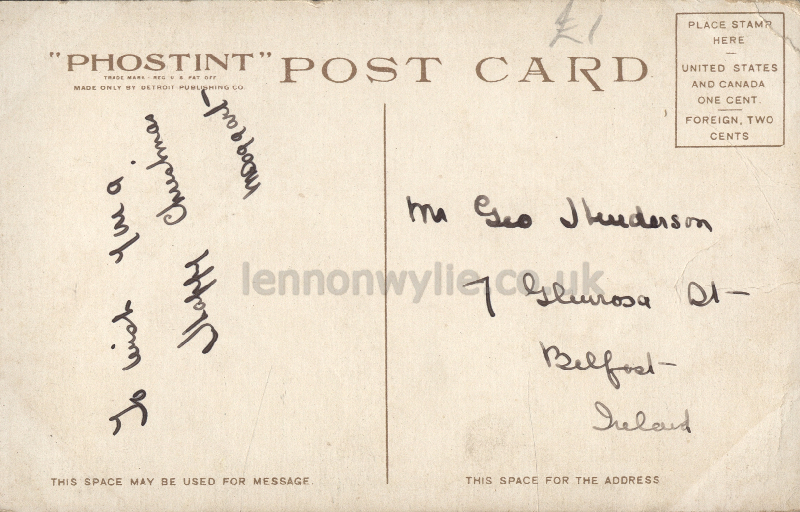 £1
"PHOSTINT"
TRADE MARK - REG U S PAT OFF
MADE ONLY BY DETROIT PUBLISHING CO.
POST CARD
PLACE STAMP
HERE
—
UNITED STATES
AND CANADA
ONE CENT.
—
FOREIGN, TWO
CENTS
To wish you a
Happy Christmas
Margaret
Mr Geo Henderson
7 Glenrosa St
Belfast
Ireland
lennonwylie.co.uk
THIS SPACE MAY BE USED FOR MESSAGE.
THIS SPACE FOR THE ADDRESS